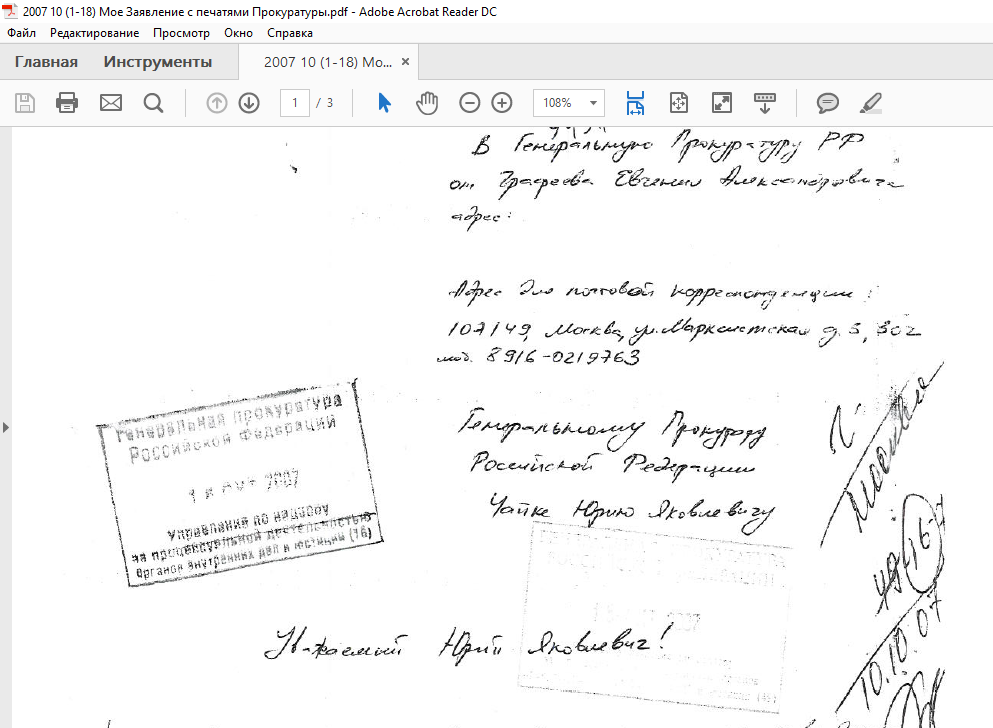 2007 10 (1-18) Мое Заявление с печатями Прокуратуры.pdf - Adobe Acrobat Reader DC
Файл Редактирование Просмотр Окно Справка
Главная Инструменты 2007 10 (1-18) Мо... ×
1 / 3 108%
В Генеральную Прокуратуру РФ
от Евгения Александровича
адрес:
Адрес для почтовой корреспонденции:
107149, Москва, ул. Марксистская д. 5, 302
моб. 8916-0219763
Генеральная прокуратура
Российской Федерации
2007
Управления по надзору
за процессуальной деятельностью
органов внутренних дел и юстиции (16)
Генеральному Прокурору
Российской Федерации
Чайке Юрию Яковлевичу
Уважаемый Юрий Яковлевич!
16
10.10.07